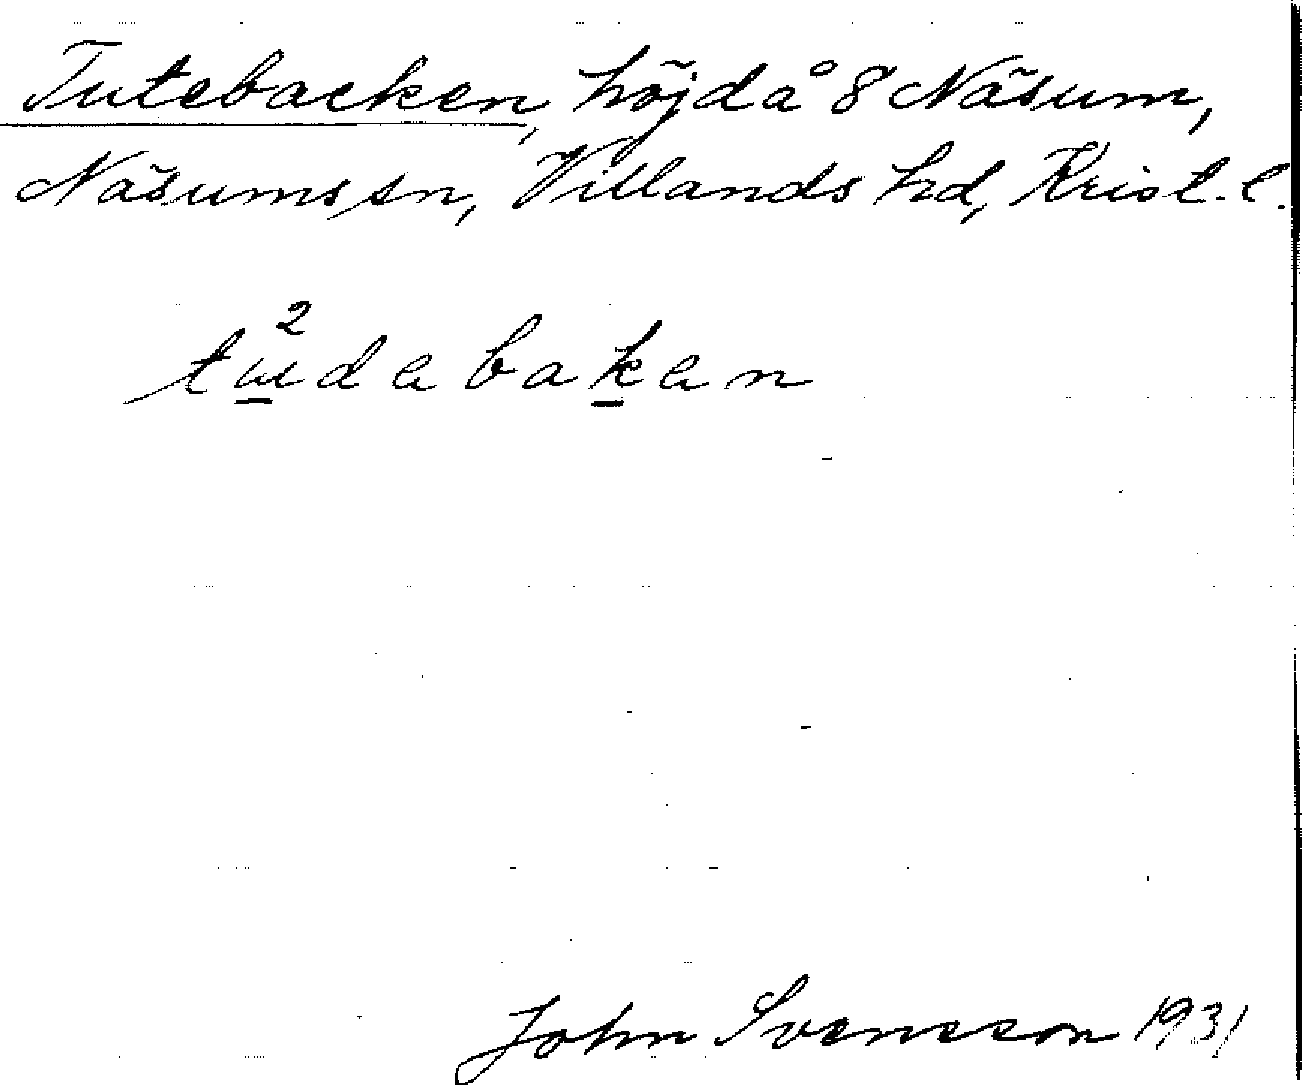 Tutebacken, höjd å 8 Näsum,
Näsums sn, Villands hd, Krist. l.
tu²debaken
John Svensson 1931